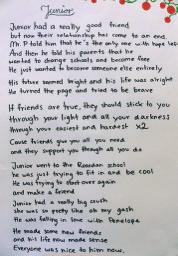 Junior
Junior had a really good friend
but now their relationship has come to an end.
Mr. P told him that he's the only one with hope left
And then he told his parents that he
wanted to change schools and become free
He just wanted to become someone else entirely
His future seemed bright and his life was alright
He turned the page and tried to be brave
If friends are true, they should stick to you
through your light and all your darkness
through your easiest and hardest x2
Cause friends give you all you need
and they support you through all you do
Junior went to the Reardan school
he was just trying to fit in and be cool
He was trying to start over again
and make a friend
Junior had a really big crush
she was so pretty like oh my gosh
He was falling in love with Penelope
He made some new friends
and his life now made sense
Everyone was nice to him now.